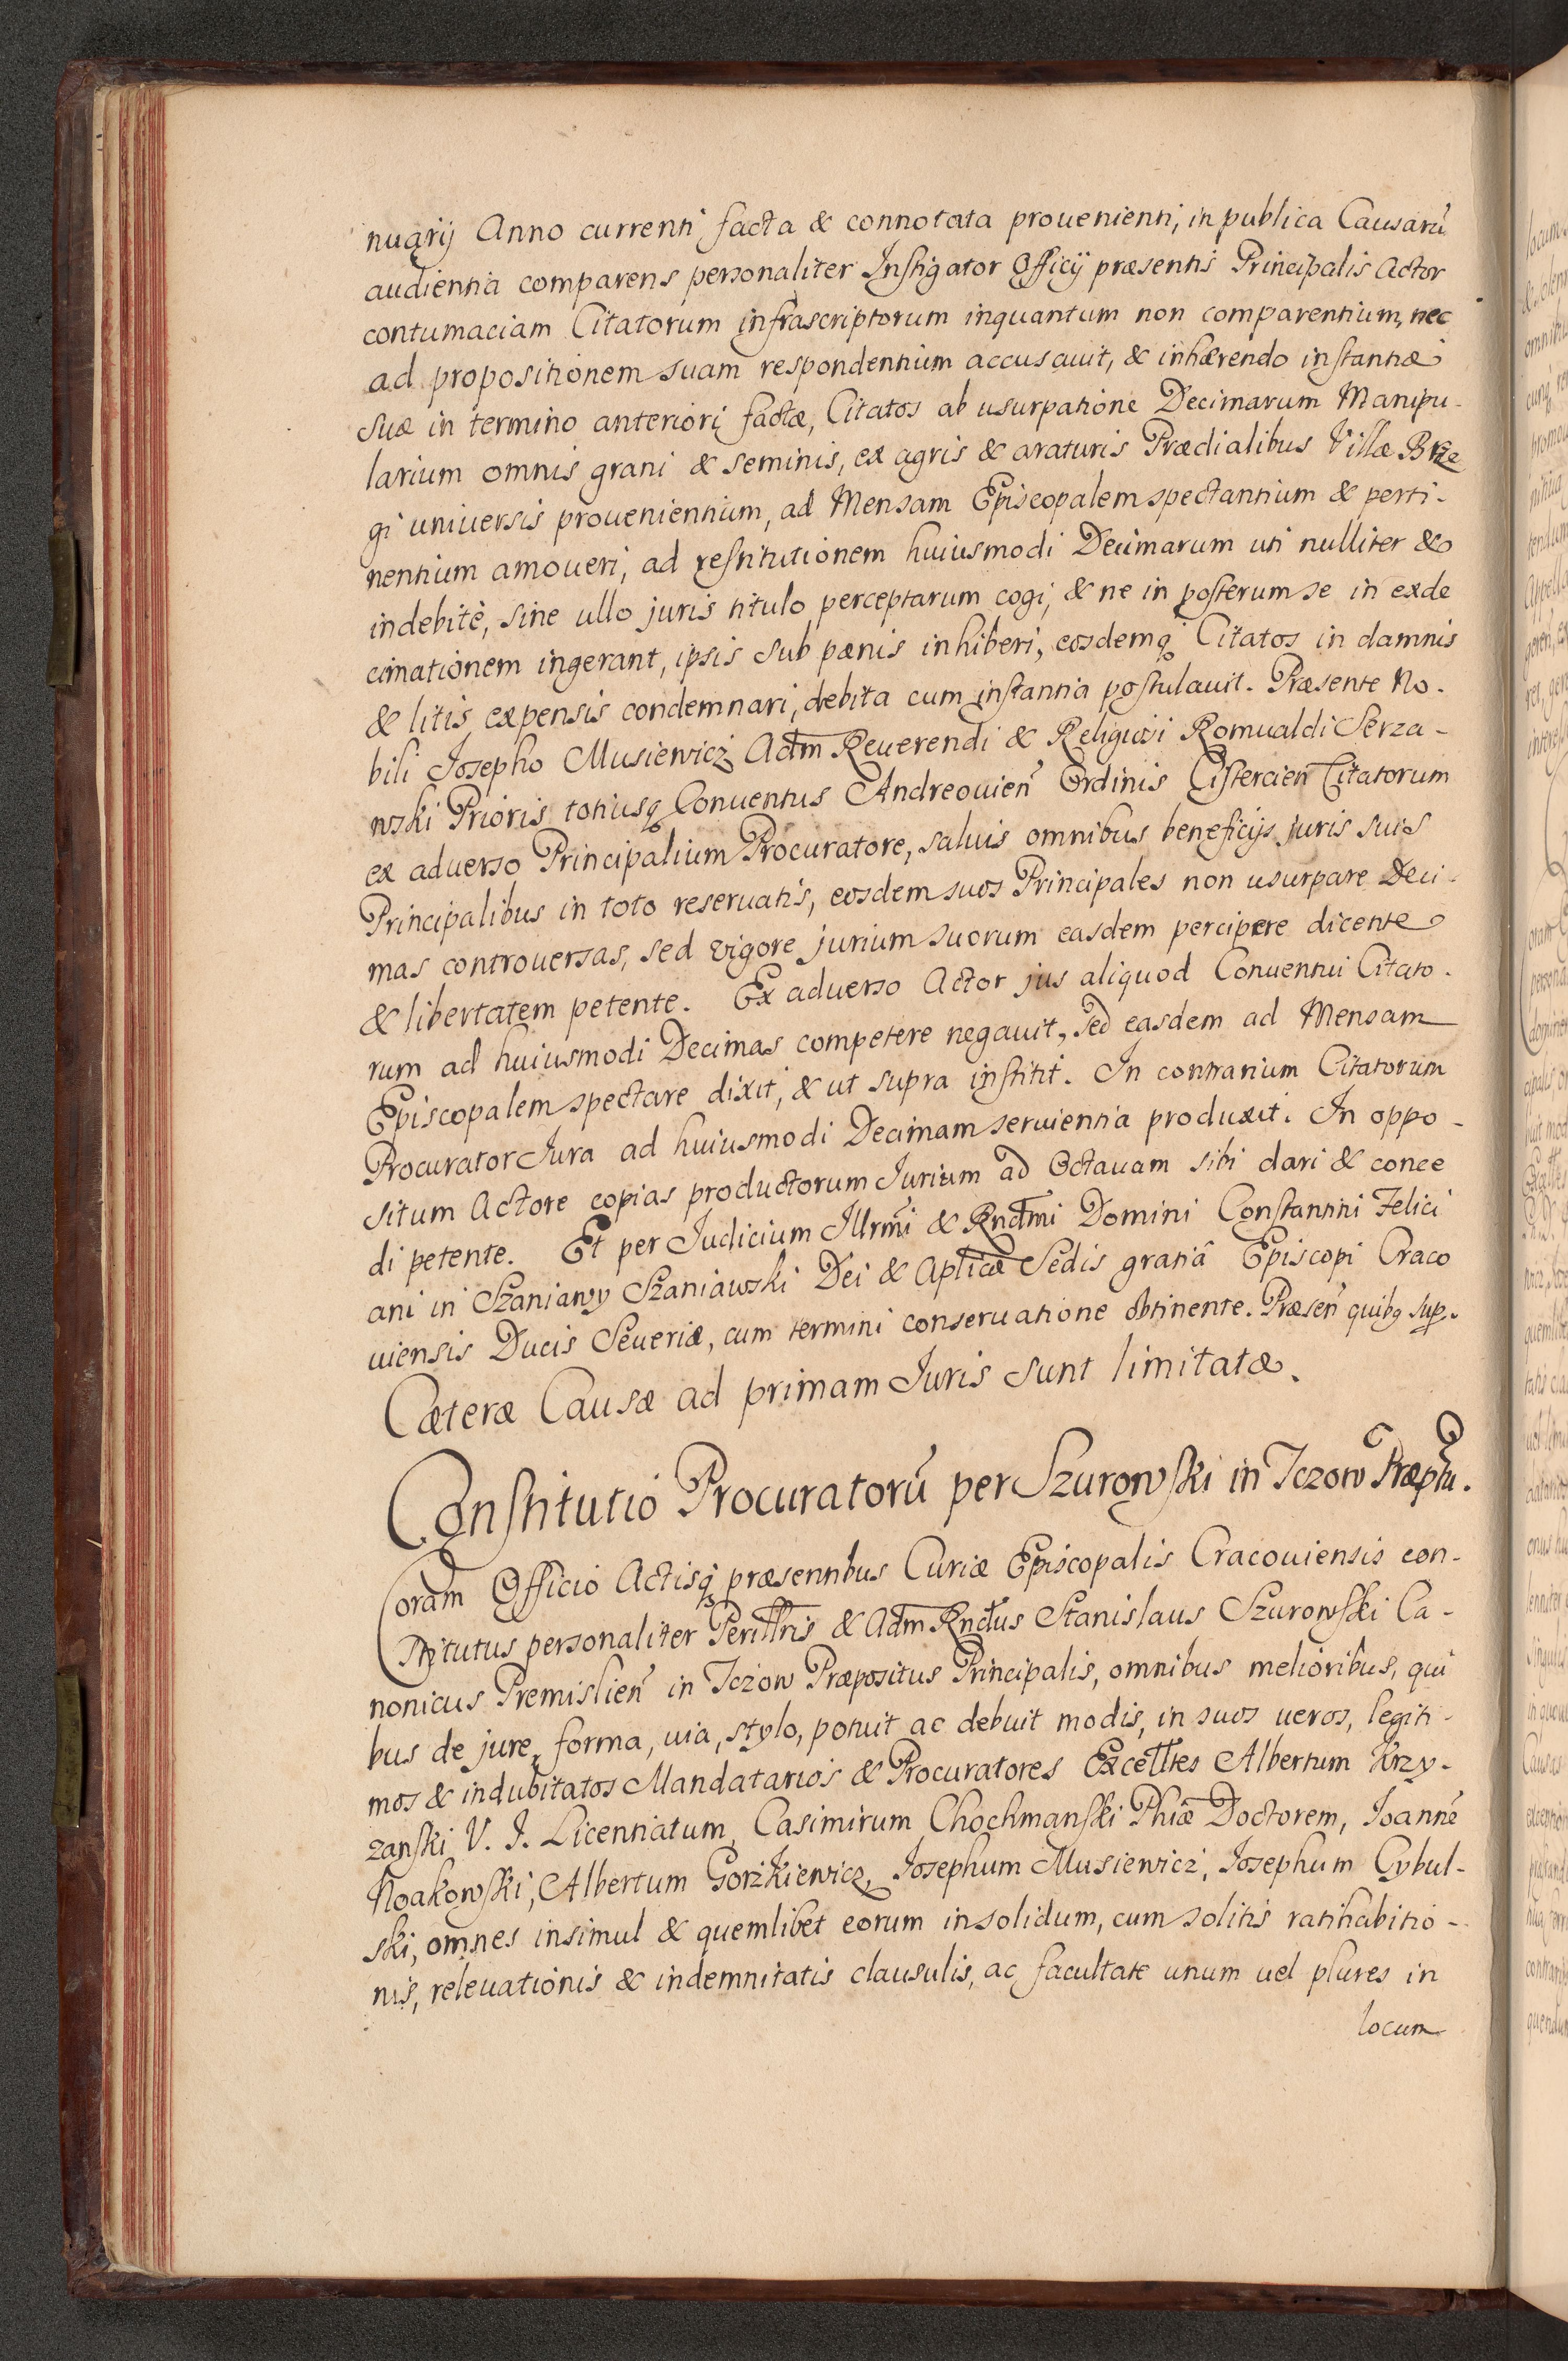 nuarij Anno currenti facta & connotata prouenienti, in publica Causarũ
audientia comparens personaliter Instigator Officij præsentis Principalis Actor
contumaciam Citatorum infrascriptorum inquantum non comparentium, nec
ad propositionem suam respondentium accusauit, & inhærendo instantiæ
suæ in termino anteriori factæ, Citatos ab usurpatione Decimarum Manipu-
larium omnis grani & seminis, ex agris & araturis Prædialibus Villæ Brze
gi uniuersis prouenientium, ad Mensam Episcopalem spectantium & perti-
nentium amoueri, ad restitutionem huiusmodi Decimarum uti nulliter &
indebitè, sine ullo juris titulo perceptarum cogi, & ne in posterum se in exde
cimationem ingerant, ipsis sub pœnis inhiberi, eosdemq; Citatos in damnis
& litis expensis condemnari, debita cum instantia postulauit. Præsente No-
bili Josepho Musiewicz Adm Reuerendi & Religiosi Romualdi Serza-
wski Prioris totiusq; Conuentus Andreouien̄ Ordinis Cistercien̄ Citatorum
ex aduerso Principalium Procuratore, saluis omnibus beneficijs juris suis
Principalibus in toto reseruatis, eosdem suos Principales non usurpare Deci-
mas controuersas, sed vigore jurium suorum easdem percipere dicente
& libertatem petente. Ex aduerso Actor jus aliquod Conuentui Citato-
rum ad huiusmodi Decimas competere negauit, sed easdem ad Mensam
Episcopalem spectare dixit, & ut supra institit. In contrarium Citatorum
Procurator Jura ad huiusmodi Decimam seruientia produxit. In oppo-
situm Actore copias productorum Jurium ad Octauam sibi dari & conce
di petente. Et per Judicium Illrmi & Rndmi Domini Constantini Felici
ani in Szaniawy Szaniawski Dei & Aplicæ Sedis gratiâ Episcopi Craco
uiensis Ducis Seueriæ, cum termini conseruatione obtinente. Præsen̄ quibq sup.
Cæteræ Causæ ad primam Juris sunt limitatæ.
Constitutio Procuratorũ per Szurowski in Iczow Præptu.
Coram Officio Actisq; præsentibus Curiæ Episcopalis Cracouiensis con-
stitutus personaliter Perillris & Adm Rndus Stanislaus Szurowski Ca-
nonicus Premislien̄ in Iczow Præpositus Principalis, omnibus melioribus, qui
bus de jure, forma, uia, stylo, potuit ac debuit modis, in suos ueros, legiti-
mos & indubitatos Mandatarios & Procuratores Excelltes Albertum Krzy-
zanski V. J. Licentiatum, Casimirum Chochmanski Phiæ Doctorem, Joannẽ
Noakowski, Albertum Gorżkiewicz, Josephum Musiewicz, Josephum Cybul-
ski, omnes insimul & quemlibet eorum insolidum, cum solitis ratihabitio-
nis, releuationis & indemnitatis clausulis, ac facultate unum uel plures in
locum